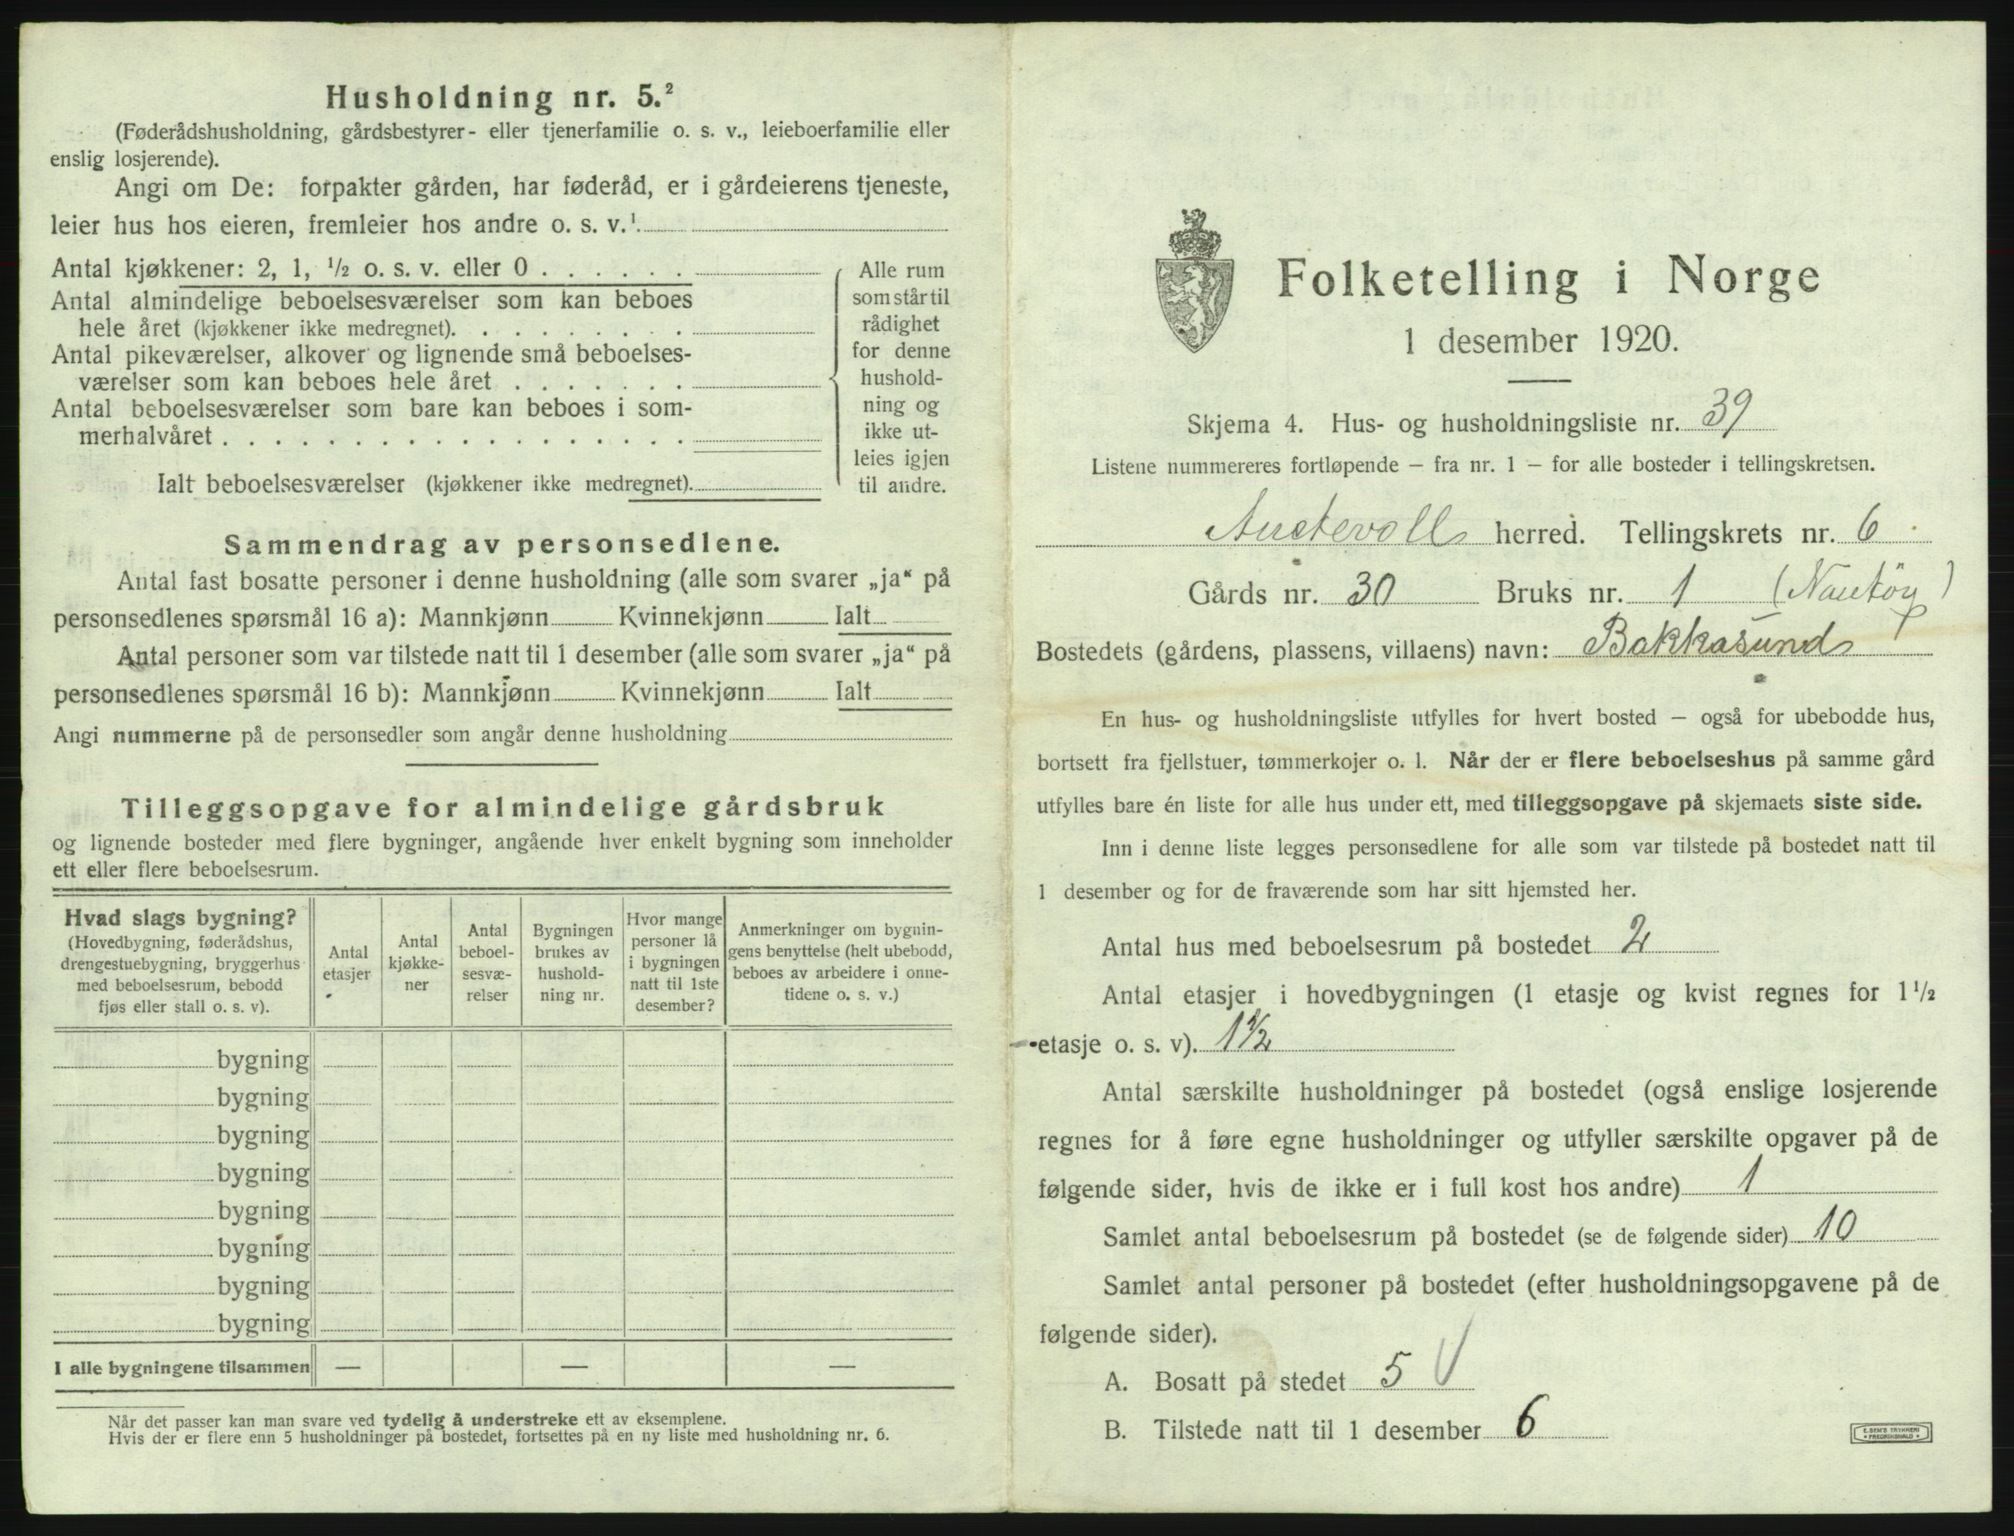 Husholdning nr. 5.²
(Føderådshusholdning, gårdsbestyrer- eller tjenerfamilie o. s. v., leieboerfamilie eller
enslig losjerende).
Angi om De: forpakter gården, har føderåd, er i gårdeierens tjeneste,
leier hus hos eieren, fremleier hos andre o. s. v.¹
Antal kjøkkener: 2, 1, ½ o. s. v. eller 0 . . . . . .
Antal almindelige beboelsesværelser som kan beboes
hele året (kjøkkener ikke medregnet). . . . . . . . .
Antal pikeværelser, alkover og lignende små beboelses-
værelser som kan beboes hele året . . . . . . .
Antal beboelsesværelser som bare kan beboes i som-
merhalvåret . . . . . . . . . . . . . . . . . .
Ialt beboelsesværelser (kjøkkener ikke medregnet).
Alle rum
som står til
rådighet
for denne
hushold-
ning og
ikke ut-
leies igjen
til andre.
Sammendrag av personsedlene.
Antal fast bosatte personer i denne husholdning (alle som svarer „ja“ på
personsedlenes spørsmål 16 a): Mannkjønn Kvinnekjønn Ialt
Antal personer som var tilstede natt til 1 desember (alle som svarer „ja“ på
personsedlenes spørsmål 16 b): Mannkjønn Kvinnekjønn Ialt
Angi nummerne på de personsedler som angår denne husholdning
Tilleggsopgave for almindelige gårdsbruk
og lignende bosteder med flere bygninger, angående hver enkelt bygning som inneholder
ett eller flere beboelsesrum.
Hvad slags bygning?
(Hovedbygning, føderådshus,
drengestuebygning, bryggerhus
med beboelsesrum, bebodd
fjøs eller stall o. s. v).
Antal
etasjer
Antal
kjøkke-
ner
Antal
beboel-
sesvæ-
relser
Bygningen
brukes av
hushold-
ning nr.
Hvor mange
personer lå
i bygningen
natt til 1ste
desember?
Anmerkninger om bygnin-
gens benyttelse (helt ubebodd,
beboes av arbeidere i onne-
tidene o. s. v.)
bygning
bygning
bygning
bygning
bygning
bygning
bygning
bygning
I alle bygningene tilsammen — — —
Når det passer kan man svare ved tydelig å understreke ett av eksemplene.
Hvis der er flere enn 5 husholdninger på bostedet, fortsettes på en ny liste med husholdning nr. 6.
Folketelling i Norge
1 desember 1920.
Skjema 4. Hus- og husholdningsliste nr. 39
Listene nummereres fortløpende – fra nr. 1 – for alle bosteder i tellingskretsen.
Austevoll herred. Tellingskrets nr. 6
Gårds nr. 30 Bruks nr. 1 (Nautöy)
Bostedets (gårdens, plassens, villaens) navn: Bakkasund
En hus- og husholdningsliste utfylles for hvert bosted – også for ubebodde hus,
bortsett fra fjellstuer, tømmerkojer o. l. Når der er flere beboelseshus på samme gård
utfylles bare én liste for alle hus under ett, med tilleggsopgave på skjemaets siste side.
Inn i denne liste legges personsedlene for alle som var tilstede på bostedet natt til
1 desember og for de fraværende som har sitt hjemsted her.
Antal hus med beboelsesrum på bostedet 2
Antal etasjer i hovedbygningen (1 etasje og kvist regnes for 1½
etasje o. s. v). 1½
Antal særskilte husholdninger på bostedet (også enslige losjerende
regnes for å føre egne husholdninger og utfyller særskilte opgaver på de
følgende sider, hvis de ikke er i full kost hos andre) 1
Samlet antal beboelsesrum på bostedet (se de følgende sider) 10
Samlet antal personer på bostedet (efter husholdningsopgavene på de
følgende sider).
A. Bosatt på stedet 5 V
B. Tilstede natt til 1 desember 6
E. SEM'S TRYKKERI
FREDRIKSHALD